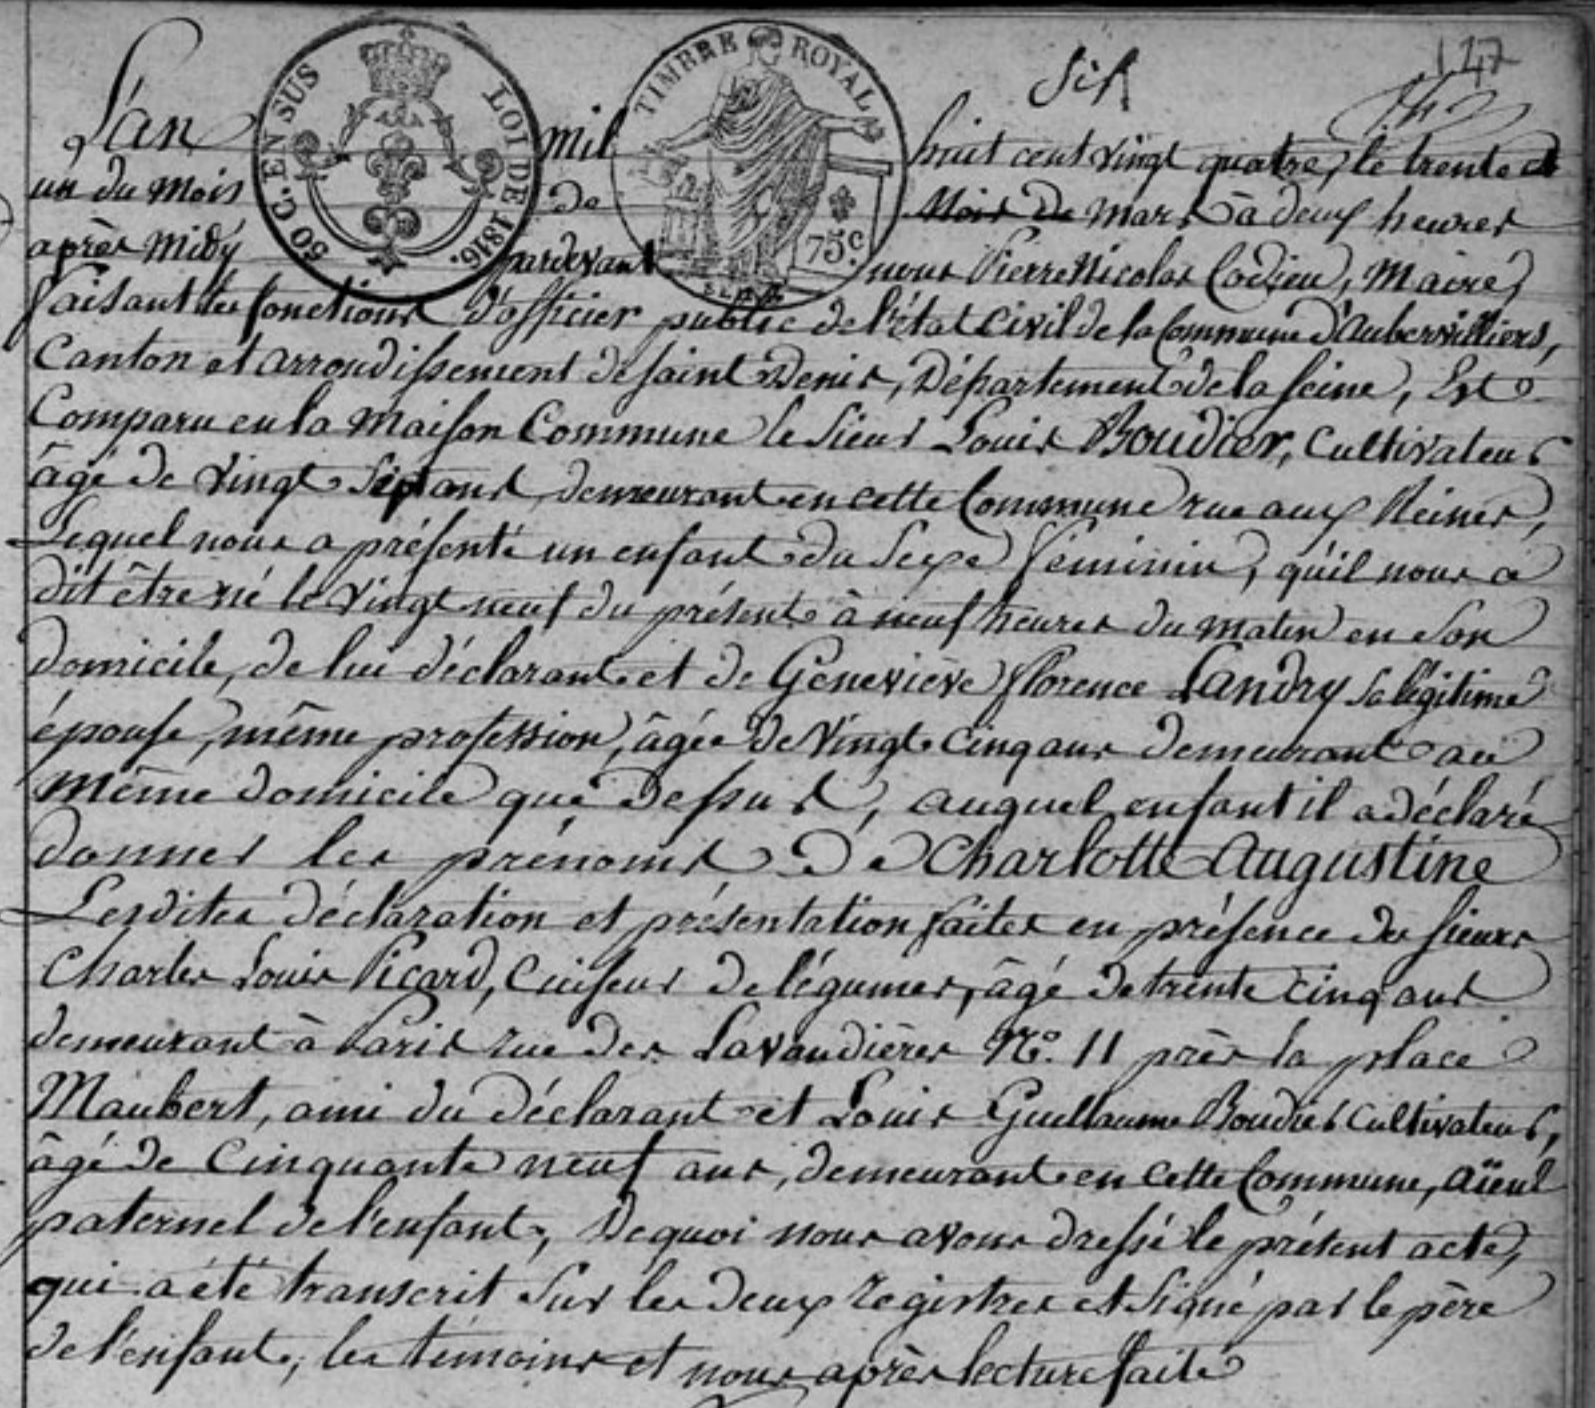 six
147
50 C. EN SUS
LOI DE 1816.
TIMBRE ROYAL
75c.
L'an mil huit cent vingt quatre, le trente et
un du mois de Mois de mars à deux heures
après midy pardevant nous Pierre Nicolas Codieu, Maire,
faisant les fonctions d'officier public de l'état civil de la Commune d'aubervilliers,
Canton et arrondissement de saint Denis, Département de la seine, Est
Comparu en la Maison Commune le sieur Louis Boudier, Cultivateur
âgé de vingt sept ans demeurant en cette Commune rue aux Reines,
Lequel nous a présenté un enfant du sexe féminin, qu'il nous a
dit être né le vingt neuf du présent à neuf heures du matin en son
domicile, de lui déclarant et de Geneviève florence Landry sa légitime
épouse, même profession, âgée de vingt cinq ans demeurant au
même domicile que dessus, auquel enfant il a déclaré
donner les prénoms De Charlotte Augustine
Lesdites déclaration et présentation faites en présence des sieurs
Charles Louis Picard, Cuiseur de légumes, âgé de trente cinq ans
demeurant à Paris rue des Lavandières No. 11 près la place
Maubert, ami du déclarant et Louis Guillaume Boudier Cultivateur,
âgé de Cinquante neuf ans, demeurant en cette Commune, aïeul
paternel de l'enfant, De quoi nous avons dressé le présent acte,
qui a été transcrit sur les deux registres et signé par le père
de l'enfant, les témoins et nous après lecture faite